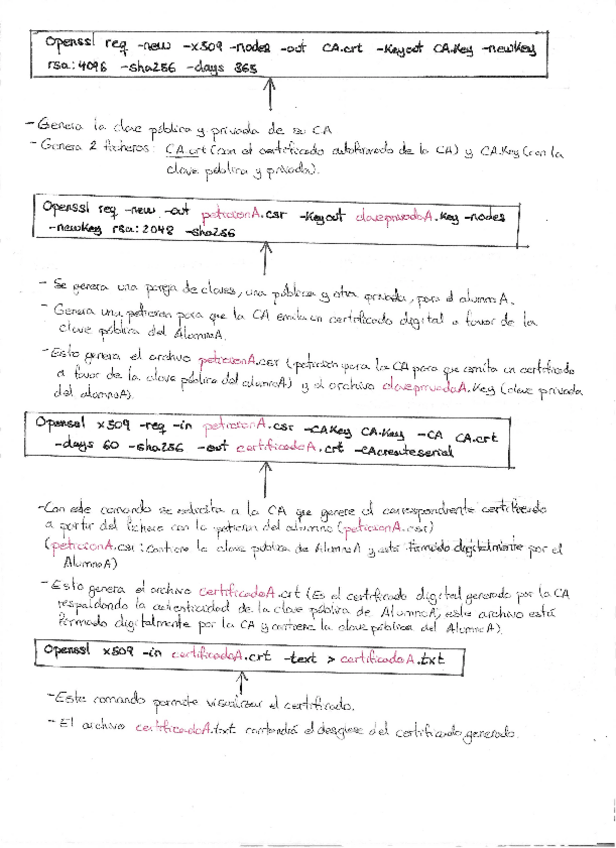 Openssl req -new -x509 -nodes -out CA.crt -Keyout CA.Key -newkey
rsa:4096 -sha256 -days 365
- Genera la clave pública y privada de su CA
- Genera 2 ficheros: CA.crt (con el certificado autofirmado de la CA) y CA.Key (con la
clave pública y privada).
Openssl req -new -out peticionA.csr -Keyout claveprivadaA.Key -nodes
-newkey rsa:2048 -sha256
- Se genera una pareja de claves, una pública y otra privada, para el alumnoA.
- Genera una petición para que la CA emita un certificado digital a favor de la
clave pública del AlumnoA.
- Esto genera el archivo peticionA.csr (petición para la CA para que emita un certificado
a favor de la clave pública del alumnoA) y el archivo claveprivadaA.Key (clave privada
del alumnoA).
Openssl x509 -req -in peticionA.csr -CAKey CA.Key -CA CA.crt
-days 60 -sha256 -out certificadoA.crt -CAcreateserial
- Con este comando se solicita a la CA que genere el correspondiente certificado
a partir del fichero con la petición del alumno (peticionA.csr)
(peticionA.csr: contiene la clave pública de AlumnoA y está firmado digitalmente por el
AlumnoA)
- Esto genera el archivo certificadoA.crt (Es el certificado digital generado por la CA
respaldando la autenticidad de la clave pública de AlumnoA, este archivo está
firmado digitalmente por la CA y contiene la clave pública del AlumnoA).
Openssl x509 -in certificadoA.crt -text > certificadoA.txt
- Este comando permite visualizar el certificado.
- El archivo certificadoA.txt contendrá el desglose del certificado generado.